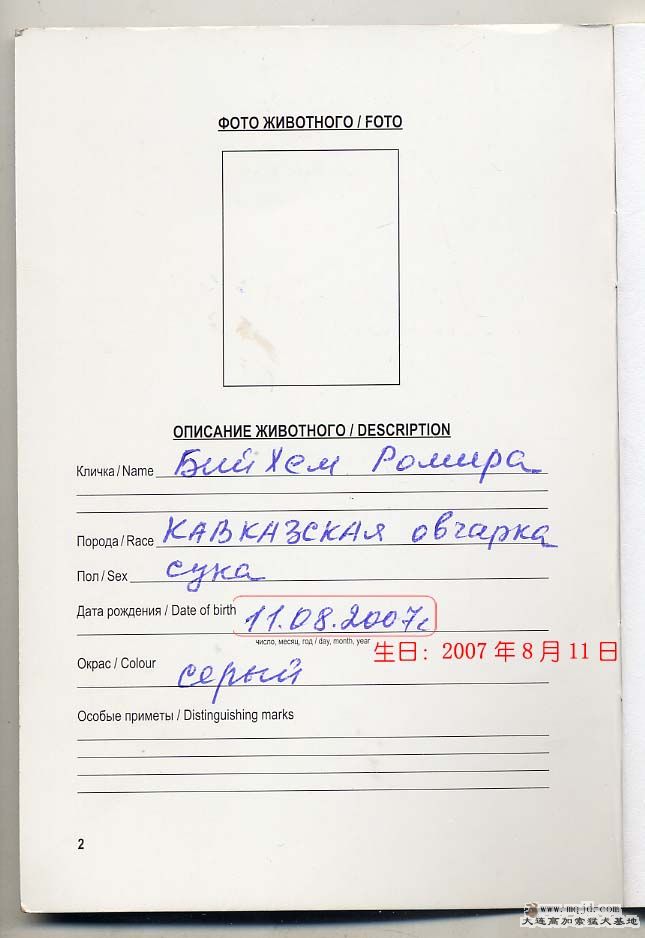 ФОТО ЖИВОТНОГО / FOTO
ОПИСАНИЕ ЖИВОТНОГО / DESCRIPTION
Кличка / Name Бий Хем Ромира
Порода / Race КАВКАЗСКАЯ овчарка
Пол / Sex сука
Дата рождения / Date of birth 11.08.2007г
число, месяц, год / day, month, year
生日：2007年8月11日
Окрас / Colour серый
Особые приметы / Distinguishing marks
2
www.mqjd.com
大连高加索猛犬基地